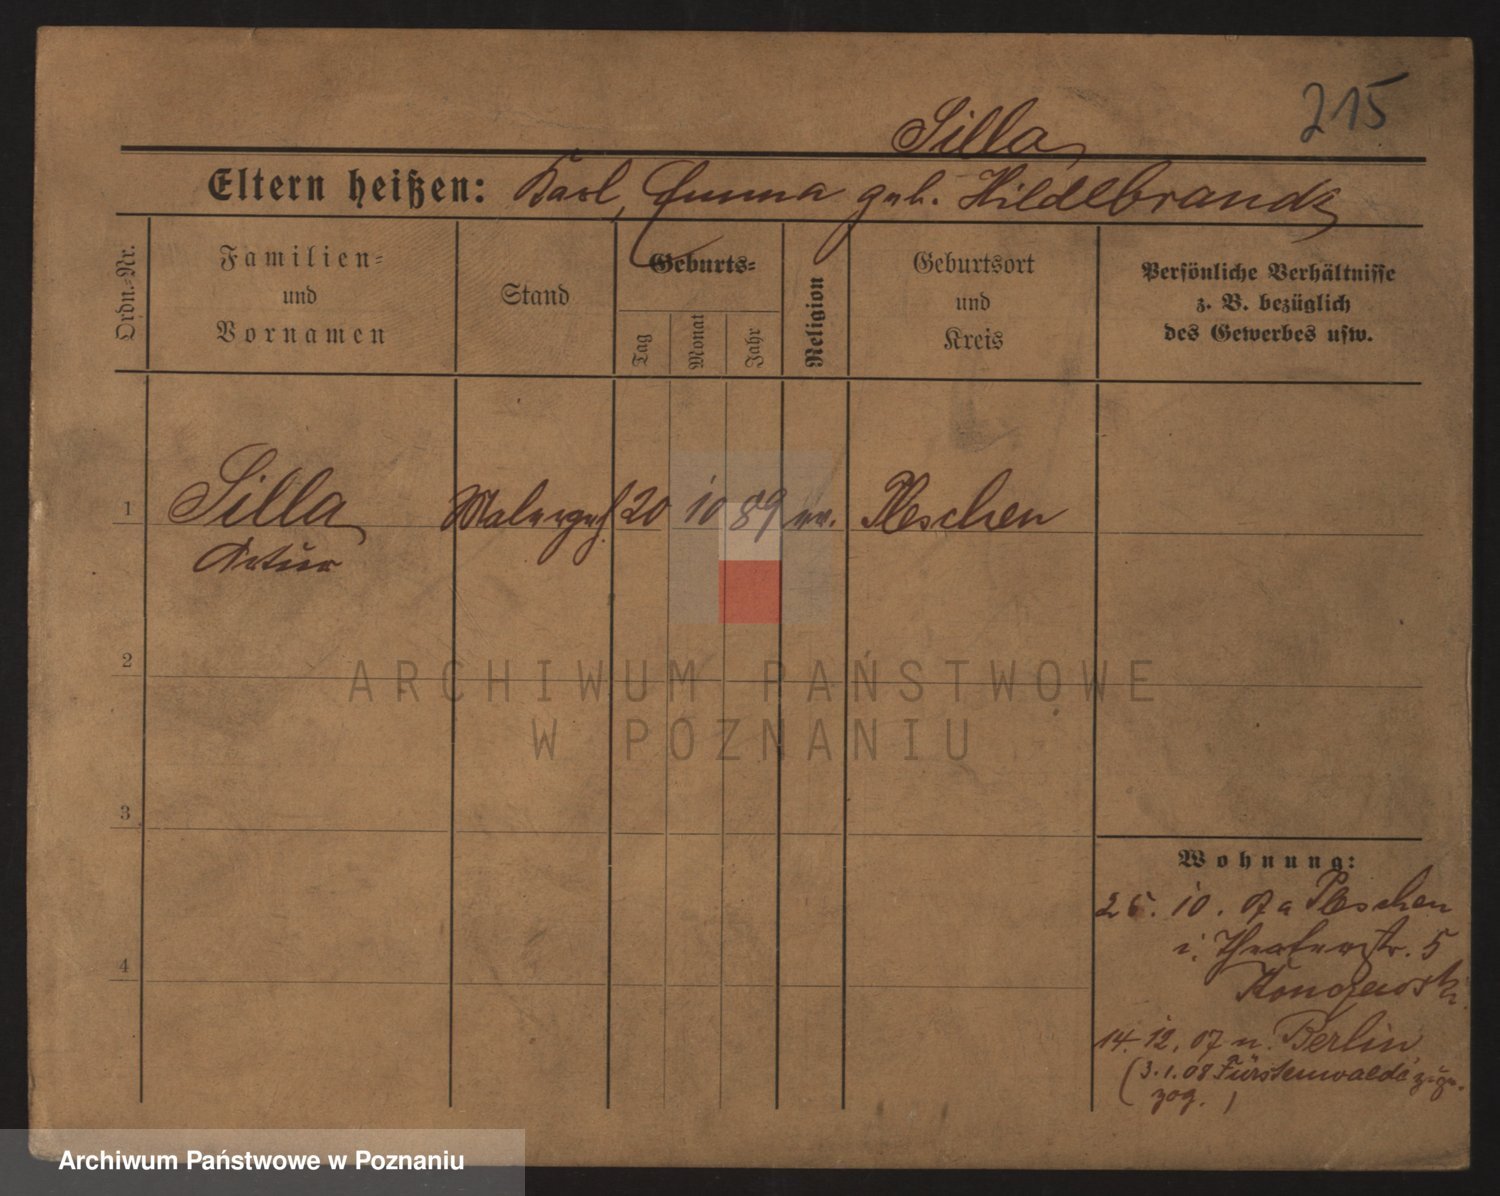 215
Silla
Eltern heißen: Karl, Emma geb. Hildebrandt
Ordn.-Nr.
Familien-
und
Vornamen
Stand
Geburts-
Tag
Monat
Jahr
Religion
Geburtsort
und
Kreis
Persönliche Verhältnisse
z. B. bezüglich
des Gewerbes usw.
1 Silla Malergeh. 20 10 89 ev. Pleschen
Artur
2
3
4
Wohnung:
10. 07 a Pleschen
i. Theaterstr. 5
14. 12. 07 n. Berlin
(3. 1. 08 Fürstenwalde zuge-
zog. )
ARCHIWUM PAŃSTWOWE
W POZNANIU
Archiwum Państwowe w Poznaniu